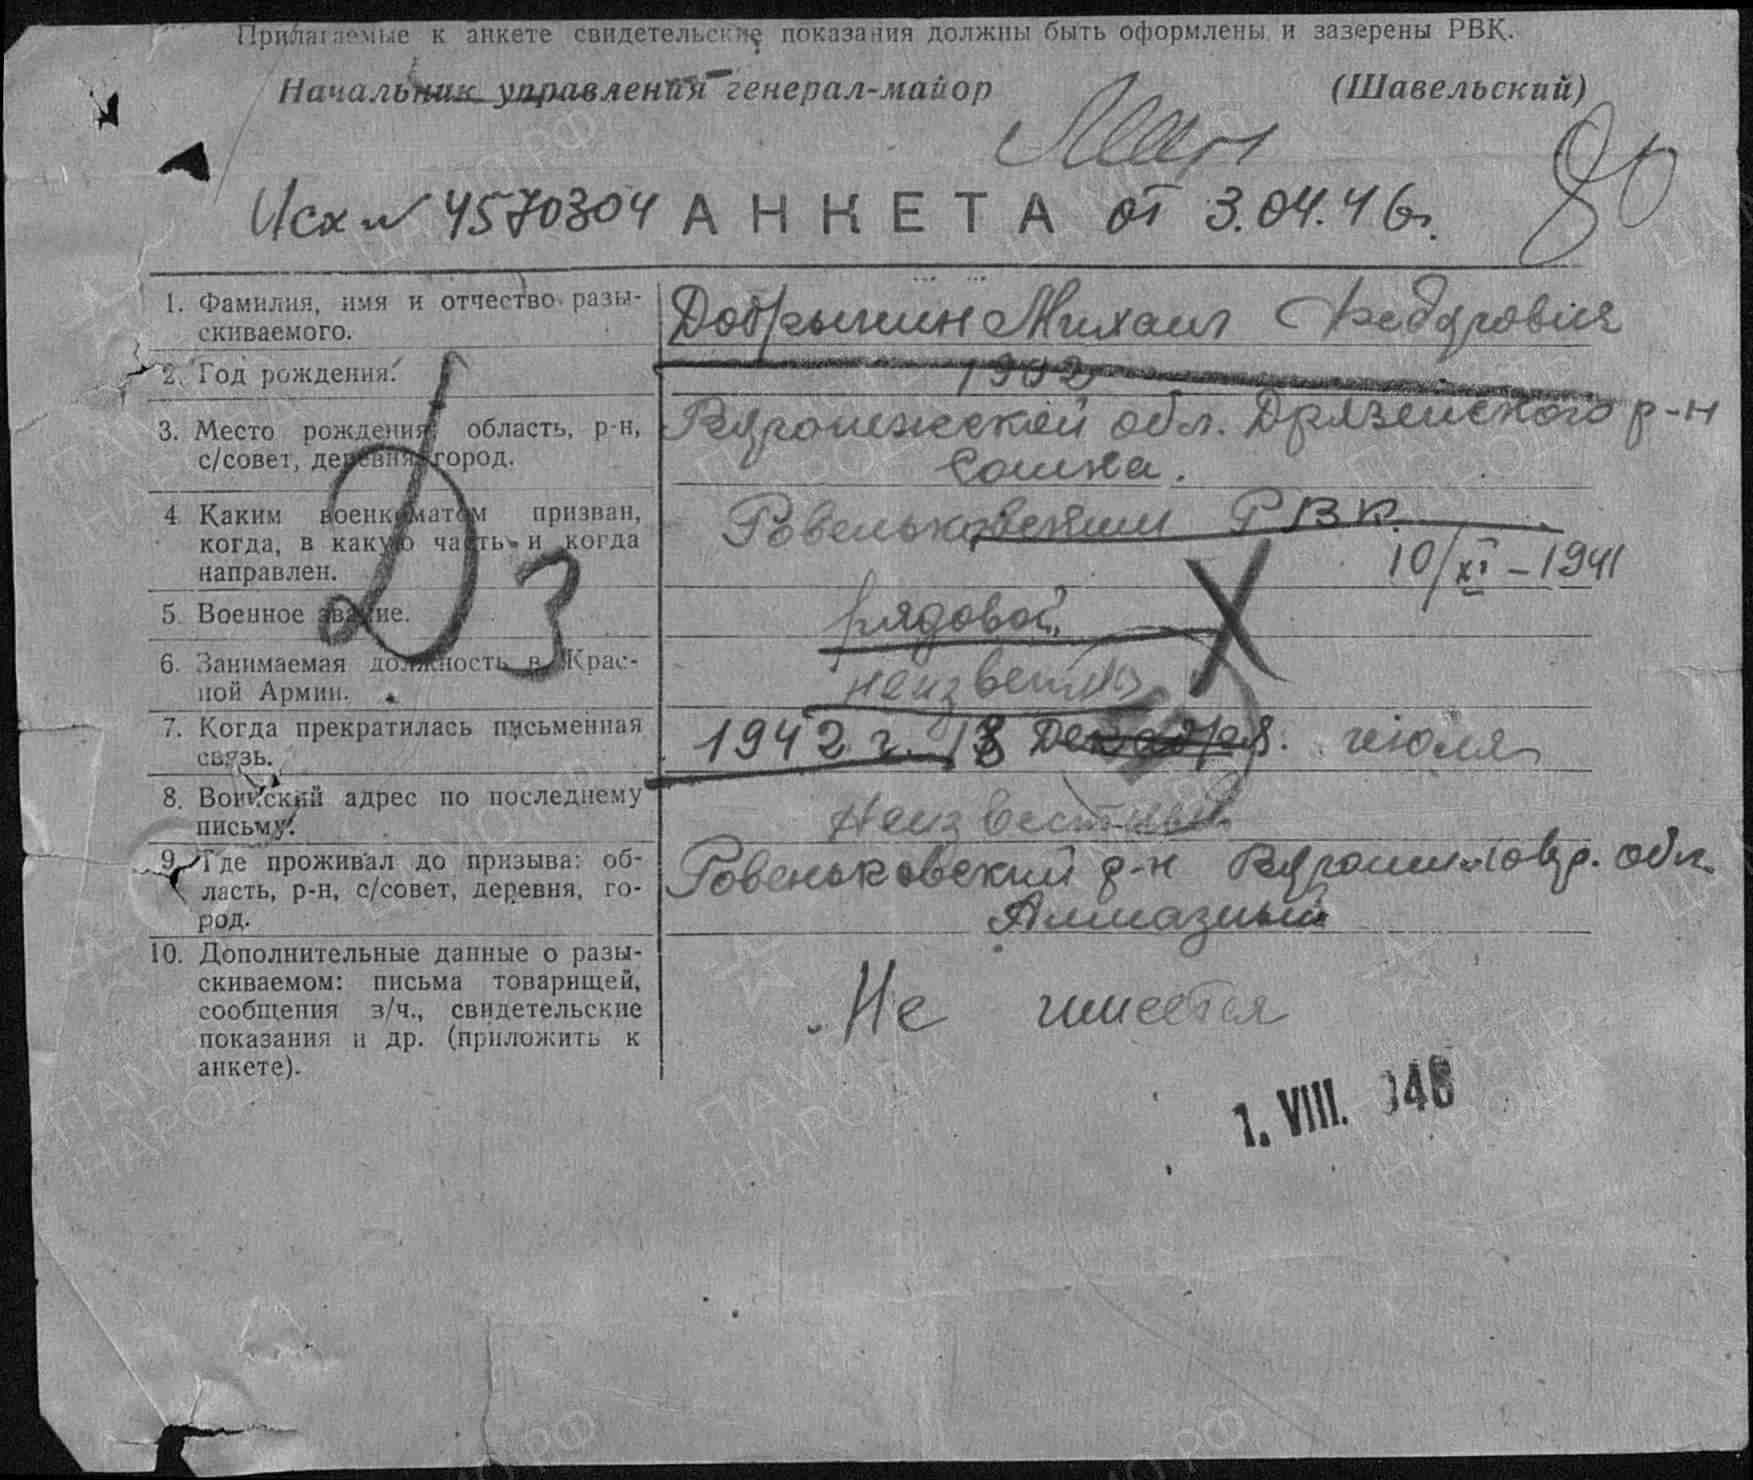 Прилагаемые к анкете свидетельские показания должны быть оформлены и зазерены РВК.
Начальник управления генерал-майор (Шавельский)
Исх № 4570304 АНКЕТА от 3.04.46г.
1. Фамилия, имя и отчество разы-
скиваемого.
Добрынин Михаил Федорович
2. Год рождения.
1902
3. Место рождения, область, р-н,
с/совет, деревня, город.
Воронежской обл. Дрязгинского р-н
Сошка.
4. Каким военкоматом призван,
когда, в какую часть и когда
направлен.
Ровеньковским РВК.
10/XI-1941
5. Военное звание.
рядовой
6. Занимаемая должность в Крас-
ной Армии.
неизвестно
7. Когда прекратилась письменная
связь.
1942 г. 18 Декабря. июля
8. Воинский адрес по последнему
письму.
Неизвестный
9. Где проживал до призыва: об-
ласть, р-н, с/совет, деревня, го-
род.
Ровеньковский р-н Ворошиловгр. обл.
Алмазный
10. Дополнительные данные о разы-
скиваемом: письма товарищей,
сообщения з/ч., свидетельские
показания и др. (приложить к
анкете).
Не имеется
1. VIII. 946